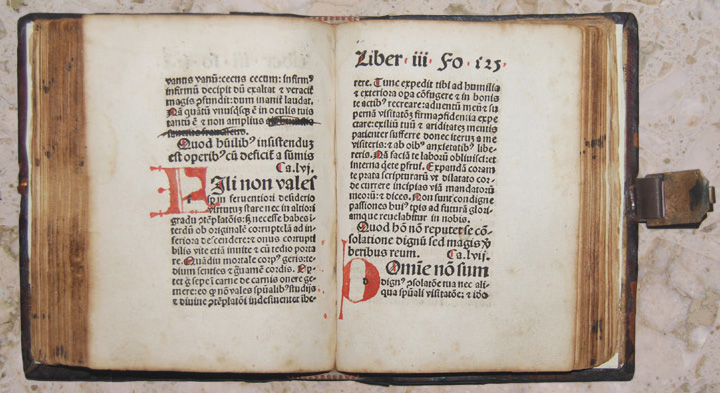 vanus vanū: cecus cecum: infirmꝰ
infirmū decipit dū exaltat ⁊ veracit̄
magis ꝯfundit: dum inanit̄ laudat.
Nā quātū vnusqꝫqꝫ ē in oculis tuis
tantū ē ⁊ non amplius
Quod hūilibꝰ insistenduꝫ
est operibꝰ cū deficit̄ a sūmis
Ca. lvj.
Fili non vales
sꝑ in feruentiori desiderio
virtutuꝫ stare nec in altiori
gradu ꝯtēplatōis: sꝫ necesse habes i-
terdū ob originalē corruptelā ad in-
feriora descendere: ⁊ onus corrupti
bilis vite etiā inuite ⁊ cū tedio porta
re. Quādiu mortale corpꝰ geris: te-
dium senties ⁊ gꝛauamē cordis. Opꝫ-
tet gͦ sepe ī carne de carnis onere ge-
mere: eo qͥ nō vales spūalibꝰ studijs
⁊ diuine ꝯtēplatōi indesinenter ihe-
Liber · iii · Fo · 125 ·
rere. Tunc expedit tibi ad humilia
⁊ exteriora oꝑa cōfugere ⁊ in bonis
te actibꝰ recreare: aduentū meū ⁊ su
pernā visitatōꝫ firma ꝯfidentia expe
ctare: exiliū tuū ⁊ ariditateꝫ mentis
patienter sufferre donec iterum a me
visiteris: ⁊ ab oībꝰ anxietatibꝰ libe-
reris. Nā faciā te laborū obliuisci: et
interna q̇ete ꝑfrui. Expandā coram
te prata scripturarū vt dilatato cor-
de currere incipias viā mandatorū
meorū: ⁊ dices. Non sunt condigne
passiones huiꝰ tꝑis ad futurā glori-
am que reuelabitur in nobis.
Quod hō nō reputet se cō-
solatione dignū sed magis ꝟ
beribus reum. Ca. lvij.
Domīe nō sum
dignꝰ ꝯsolatōe tua nec ali-
qua spūali visitatōe: ⁊ ideo